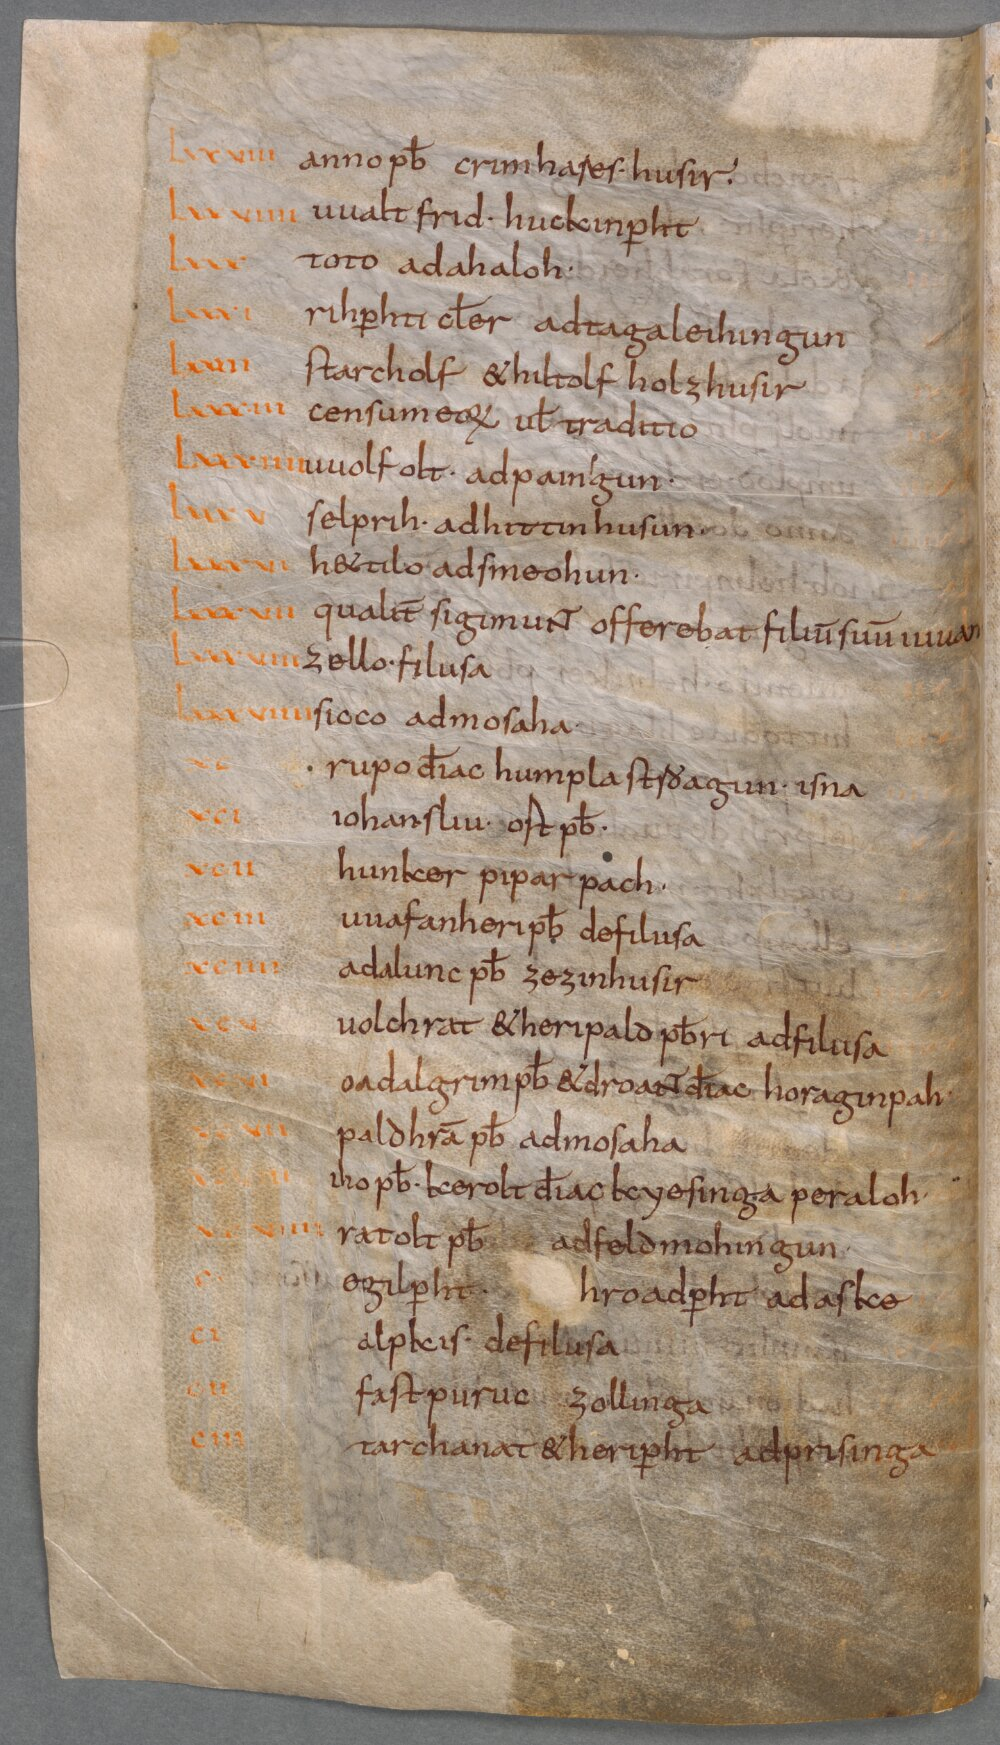 Lxxviii anno pb̄ crimhases· husir·
Lxxviiii uualt frid· huckinp̄ht
Lxxx toto adahaloh·
Lxxxi rihp̄hti cl̄er adtagaleihingun
Lxxxii starcholf & hiltolf holzhusir
Lxxxiii censum eoꝝ ul̄ traditio
Lxxxiiii uuolf olt· adpaingun·
Lxxxv selprih· adhittinhusun·
Lxxxvi h&tilo adsmeohun·
Lxxxvii qualit̄ sigimunt offerebat filiū suū uuan
Lxxxviii zello· filusa
Lxxxviiii sicco admosaha·
xc · rupo diac̄ humpla stsdagun· isna
xci iohan sliu· ost pb̄·
xcii hunker pipar pach·
xciii uuafanheri pb̄ defilusa
xciiii adalunc pb̄ zezinhusir
xcv uolchrat & heripald pb̄ri adfilusa
xcvi oadalgrim pb̄ & droant diac̄ horaginpah·
xcvii paldhrā pb̄ admosaha
xcviii iho pb̄· kerolt diac̄ keyesinga peraloh·
xcviiii ratolt pb̄ adfeldmohingun·
c egilp̄ht· hroadp̄ht adaske
ci alpkis· defilusa
cii fastpuruc zollinga
ciii tarchanat & herip̄ht adprisinga